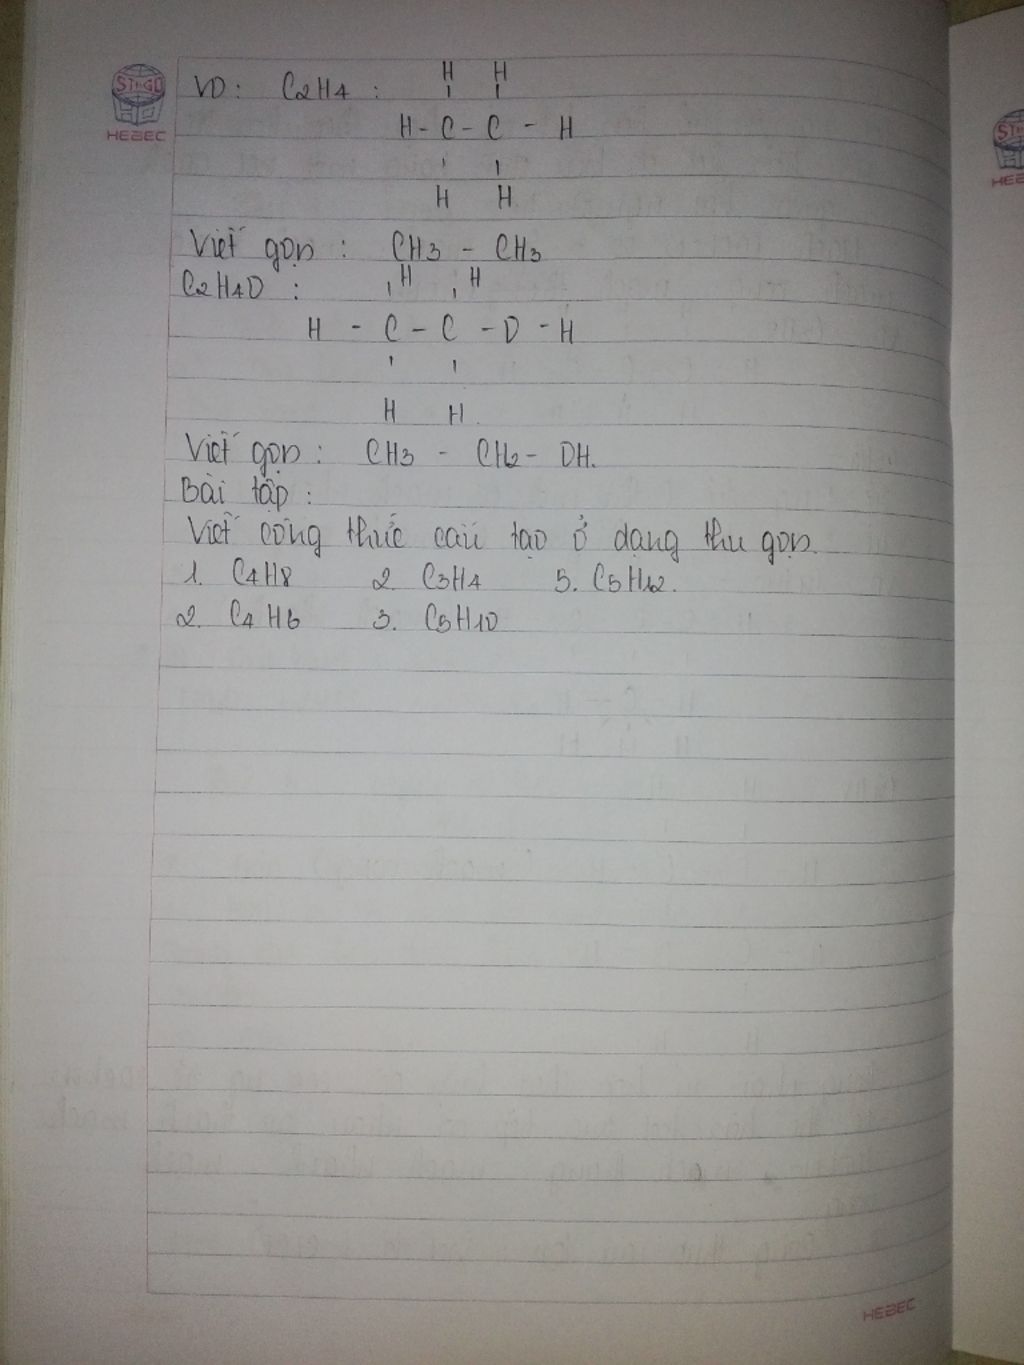 STAGO
HEBEC
VD: C2H4:
H H
H - C - C - H
H H
Viết gọn: CH3 - CH3
C2H4O:
H H
H - C - C - O - H
H H
Viết gọn: CH3 - CH2 - OH.
Bài tập:
Viết công thức cấu tạo ở dạng thu gọn.
1. C4H8 2. C3H4 5. C5H12.
2. C4H6 3. C5H10
HEBEC